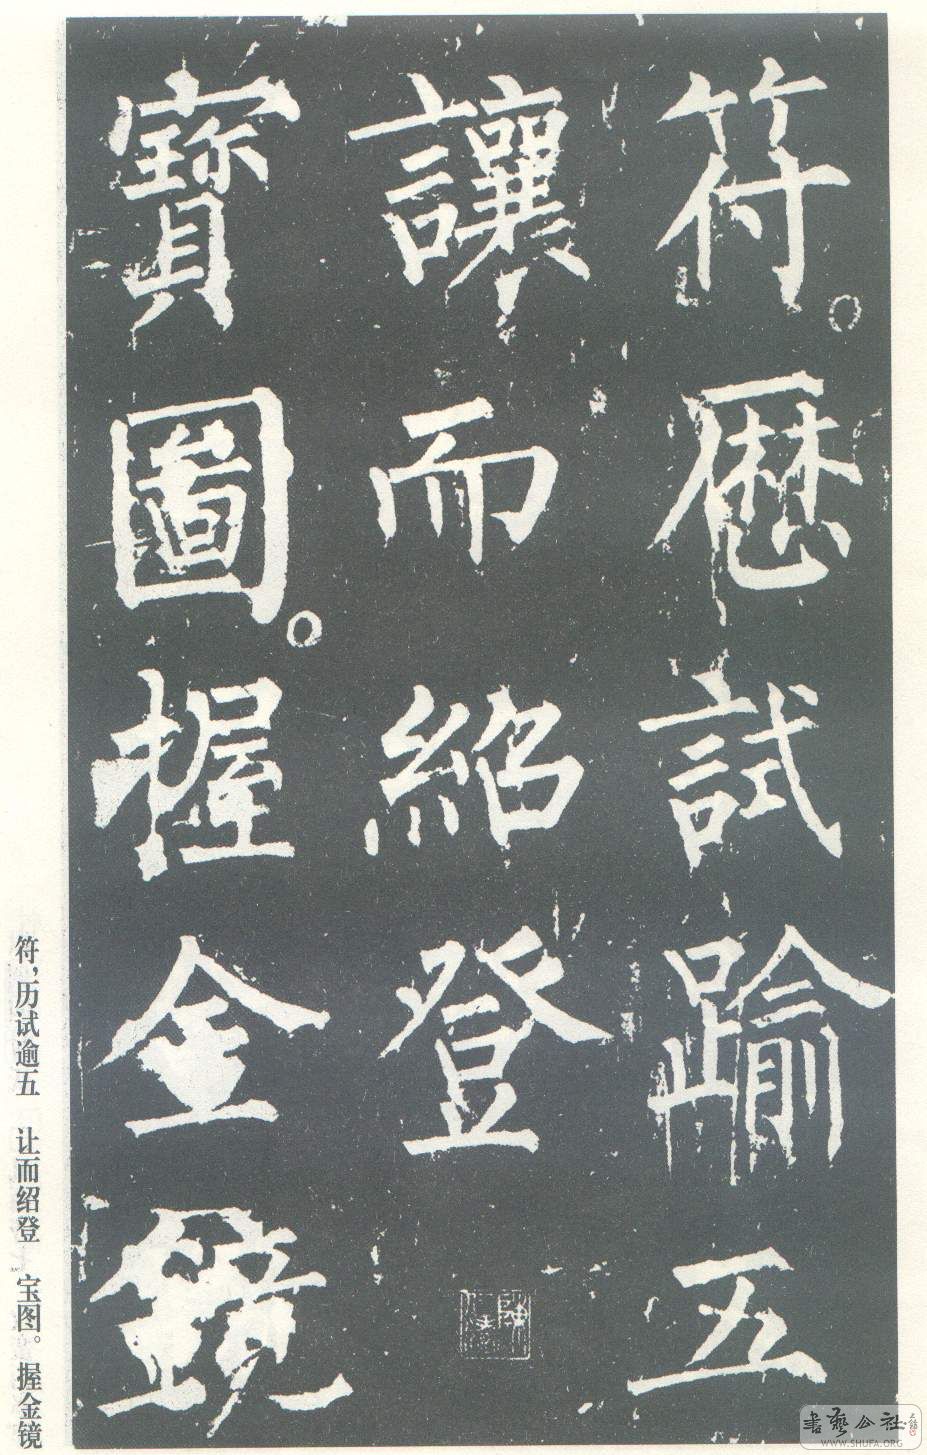 符。歷試踰五
讓而紹登
寶圖。握金鏡
符，历试逾五　让而绍登　宝图。握金镜
書藝公社
WWW.SHUFA.ORG